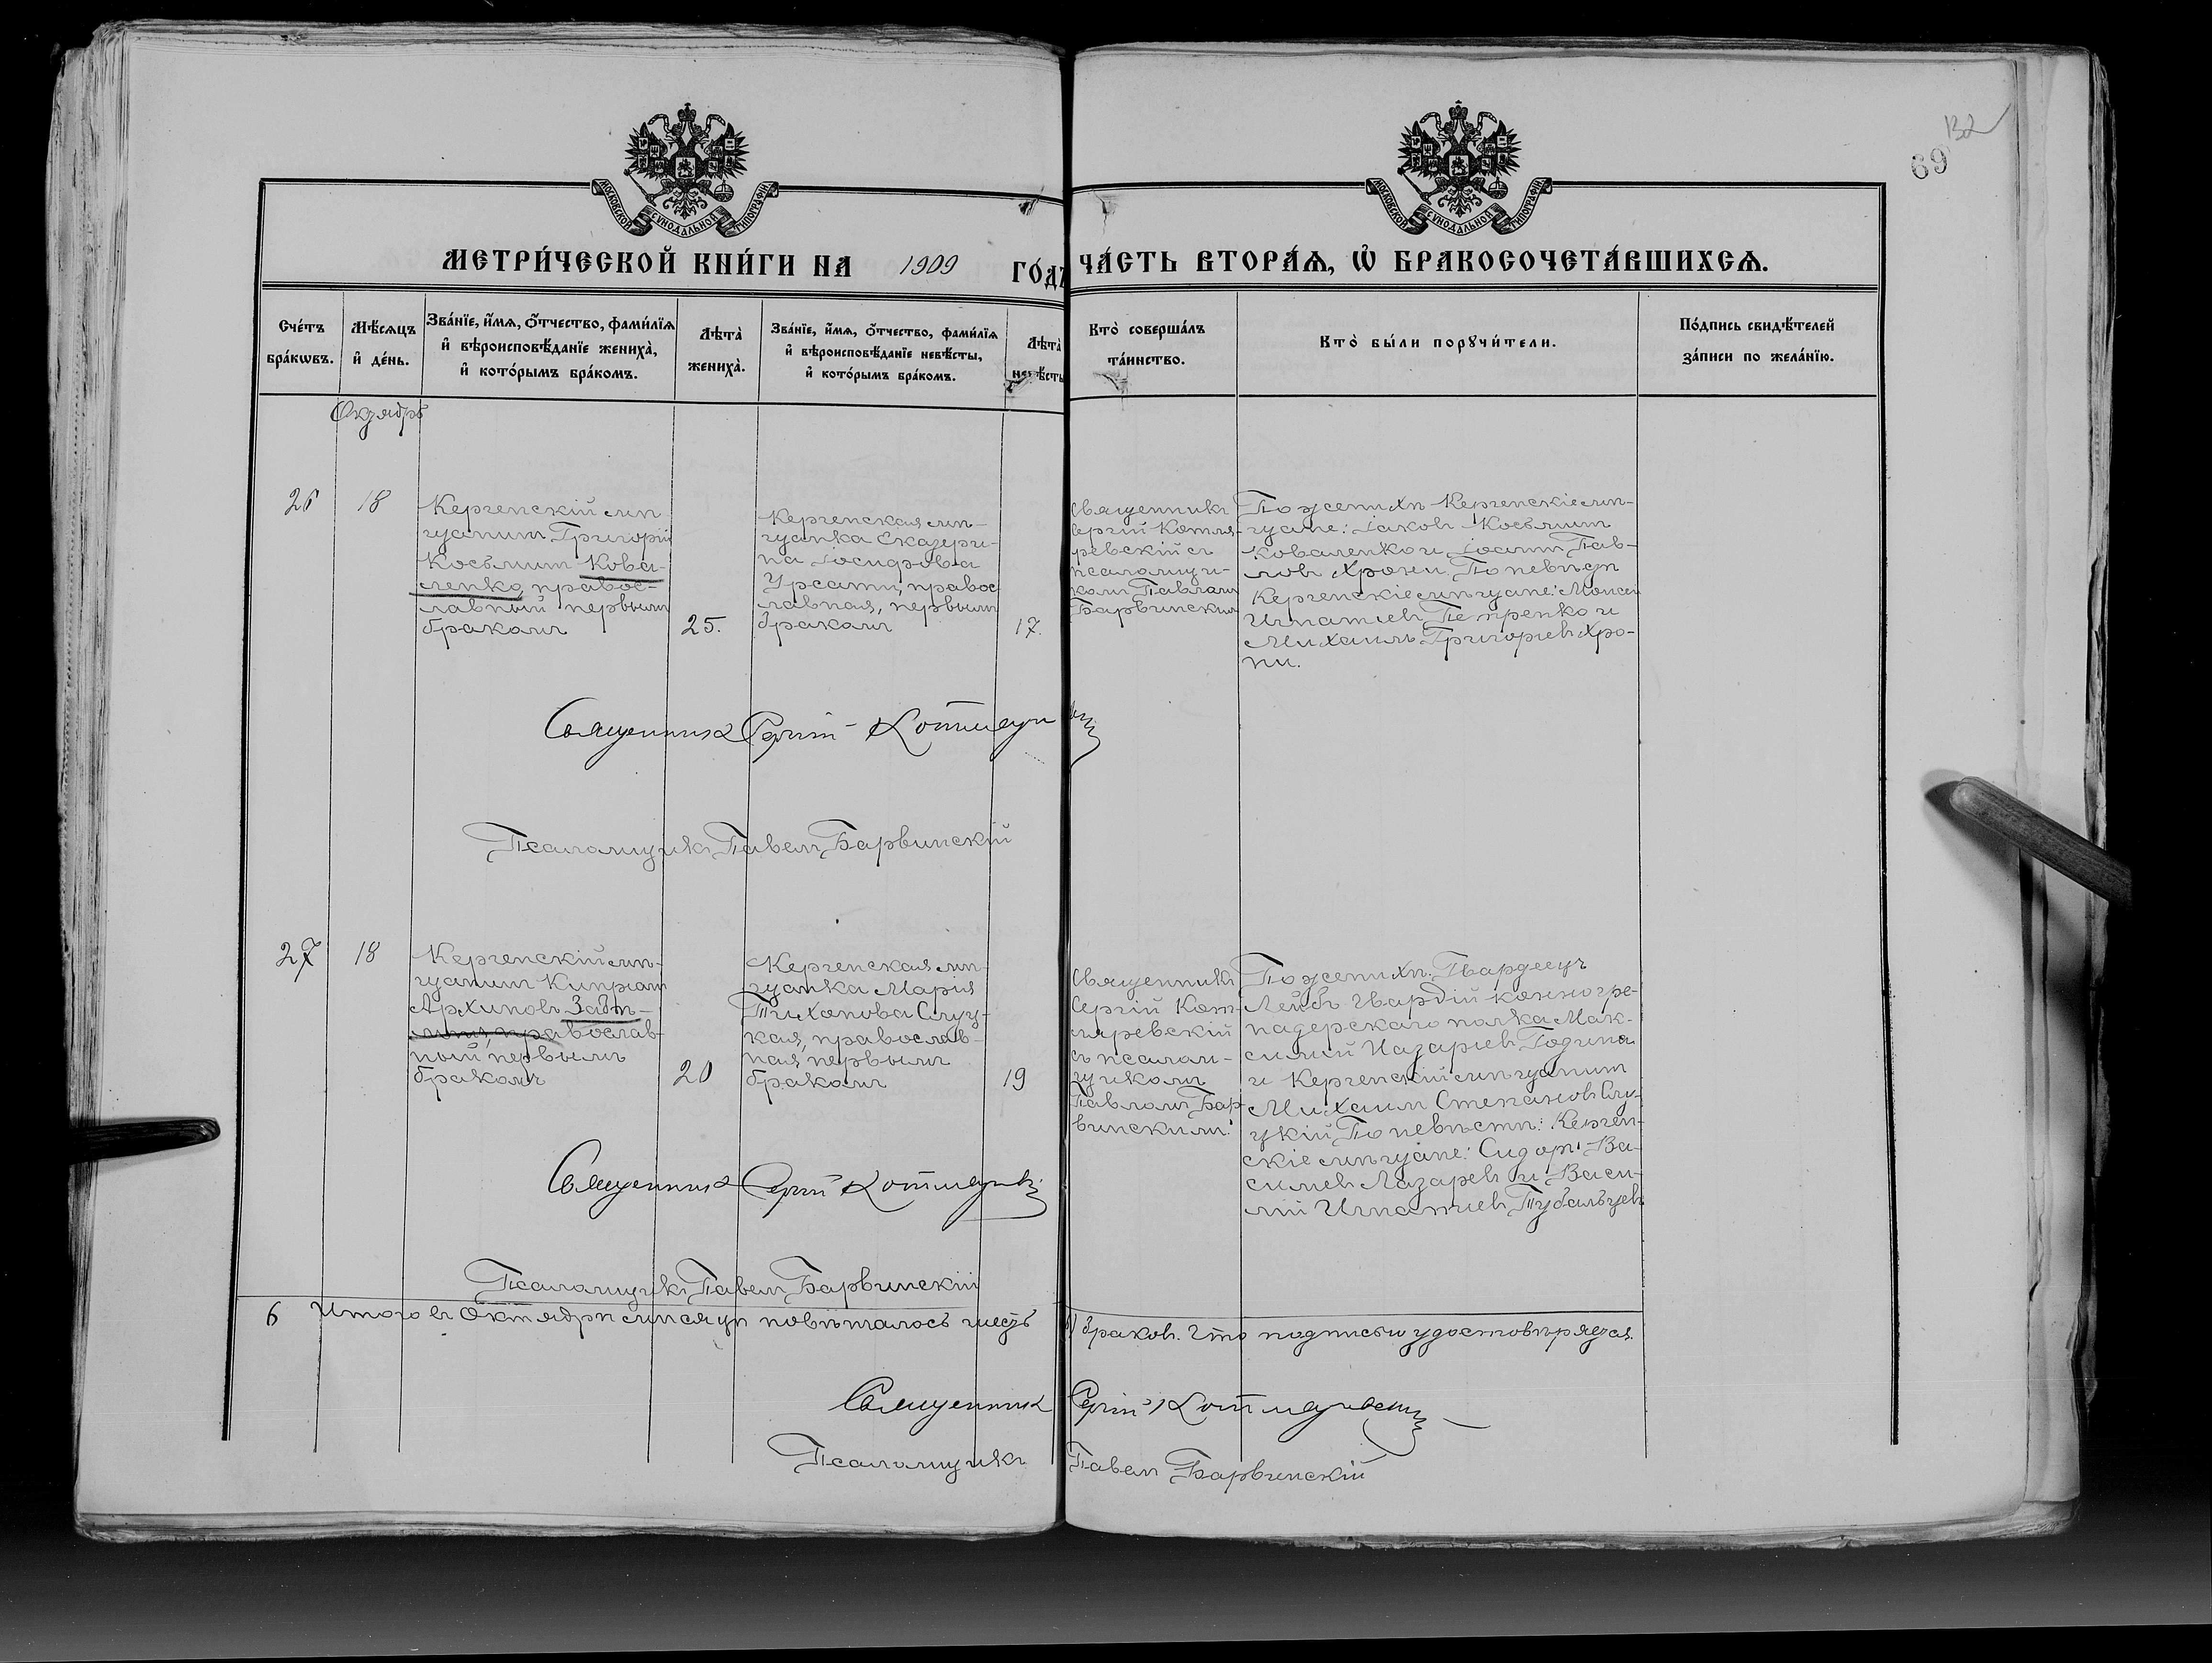 132
69
МОСКОВСКОЙ СѴНОДАЛЬНОЙ ТИПОГРАФІИ
МОСКОВСКОЙ СѴНОДАЛЬНОЙ ТИПОГРАФІИ
МЕТРИ́ЧЕСКОЙ КНИ́ГИ НА 1909 ГО́ДЪ
ЧА́СТЬ ВТОРА́Ѧ, Ѡ҆ БРАКОСОЧЕТА́ВШИХСѦ.
Сче́тъ
бра́кѡвъ.
Мѣ́сѧцъ
и҆ де́нь.
Зва́нїе, и҆́мѧ, ѻ҆́тчество, фами́лїѧ
и҆ вѣроисповѣ́данїе жениха̀,
и҆ кото́рымъ бра́комъ.
Лѣта̀
жениха̀.
Зва́нїе, и҆́мѧ, ѻ҆́тчество, фами́лїѧ
и҆ вѣроисповѣ́данїе невѣ́сты,
и҆ кото́рымъ бра́комъ.
Лѣта̀
невѣ́сты
Кто̀ соверша́лъ
та́инство.
Кто̀ бы́ли порꙋчи́тели.
По́дпись свидѣ́телей
за́писи по жела́нїю.
Октябрь
26
18
Керченскій мѣ-
щанинъ Григорій
Косьминъ Кова-
ленко, правос-
лавный первымъ
бракомъ
25.
Керченская мѣ-
щанка Екатери-
на Іосифова
Урсати, правос
лавная, первымъ
бракомъ
17.
Священникъ
Сергій Котля-
ревскій съ
псаломщи-
комъ Павломъ
Барвинскимъ
По женихѣ Керченскіе мѣ-
щане: Іаковъ Косьминъ
Коваленко и Іоаннъ Пав-
ловъ Хрони. По невѣстѣ
Керченскіе мѣщане: Моисей
Игнатіевъ Петренко и
Михаилъ Григоріевъ Хро-
ни.
Священникъ Сергій Котляревскій
Псаломщикъ Павелъ Барвинскій
27
18
Керченскій мѣ-
щанинъ Кипріанъ
Архиповъ
православ-
ный первымъ
бракомъ
20
Керченская мѣ-
щанка Марія
Тихонова Слуц-
кая, православ-
ная первымъ
бракомъ
19
Священникъ
Сергій Кот-
ляревскій
съ псалом-
щикомъ
Павломъ Бар-
винскимъ.
По женихѣ. Гвардеецъ
Лейбъ Гвардій конногре-
надерскаго полка Мак-
симій Назаріевъ Година
и Керченскій мѣщанинъ
Михаилъ Степановъ Слу-
цкій. По невѣстѣ: Керчен-
скіе мѣщане: Сидоръ Ва-
силіевъ Лазаревъ и Васи-
лій Игнатіевъ Тубальцевъ
Священникъ Сергій Котляревскій
Псаломщикъ Павелъ Барвинскій
6 Итого въ Октябрѣ мѣсяцѣ повѣнчалось шесть 6) браковъ. Что подписью удостовѣряется.
Священникъ Сергій Котляревскій
Псаломщикъ Павелъ Барвинскій